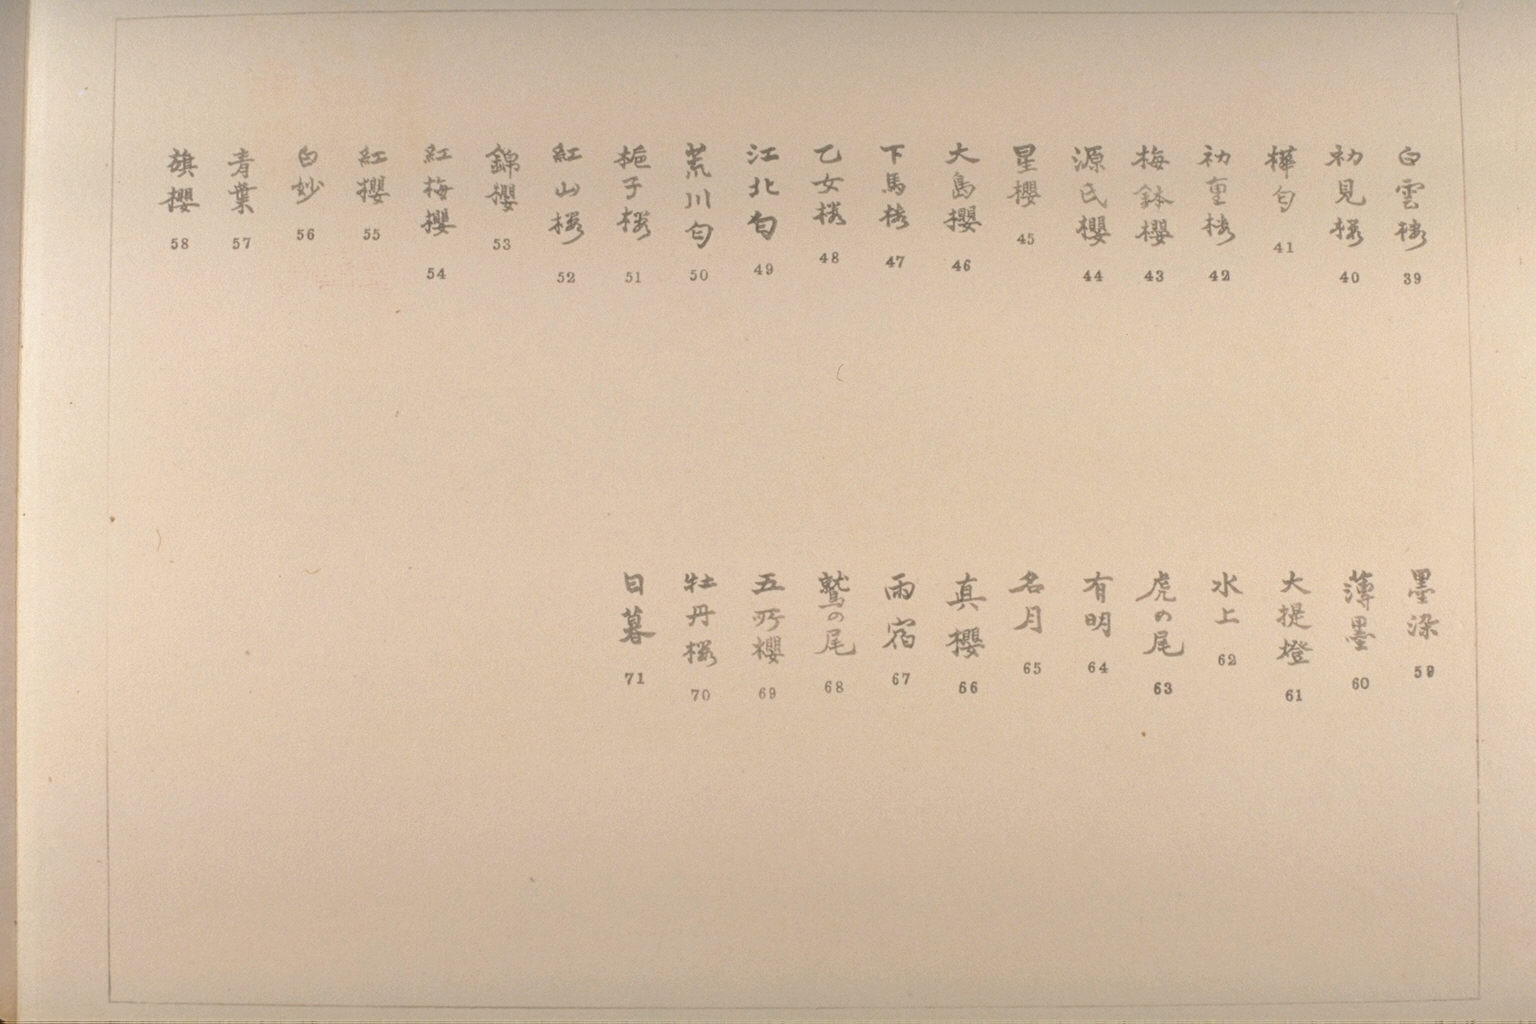 白雲櫻 39
初見櫻 40
樺匂 41
初重櫻 42
梅鉢櫻 43
源氏櫻 44
星櫻 45
大島櫻 46
下馬櫻 47
乙女櫻 48
江北匂 49
荒川匂 50
梔子櫻 51
紅山櫻 52
錦櫻 53
紅梅櫻 54
紅櫻 55
白妙 56
青葉 57
旗櫻 58
墨染 59
薄墨 60
大提燈 61
水上 62
虎の尾 63
有明 64
名月 65
真櫻 66
雨宿 67
鷲の尾 68
五所櫻 69
牡丹櫻 70
日暮 71